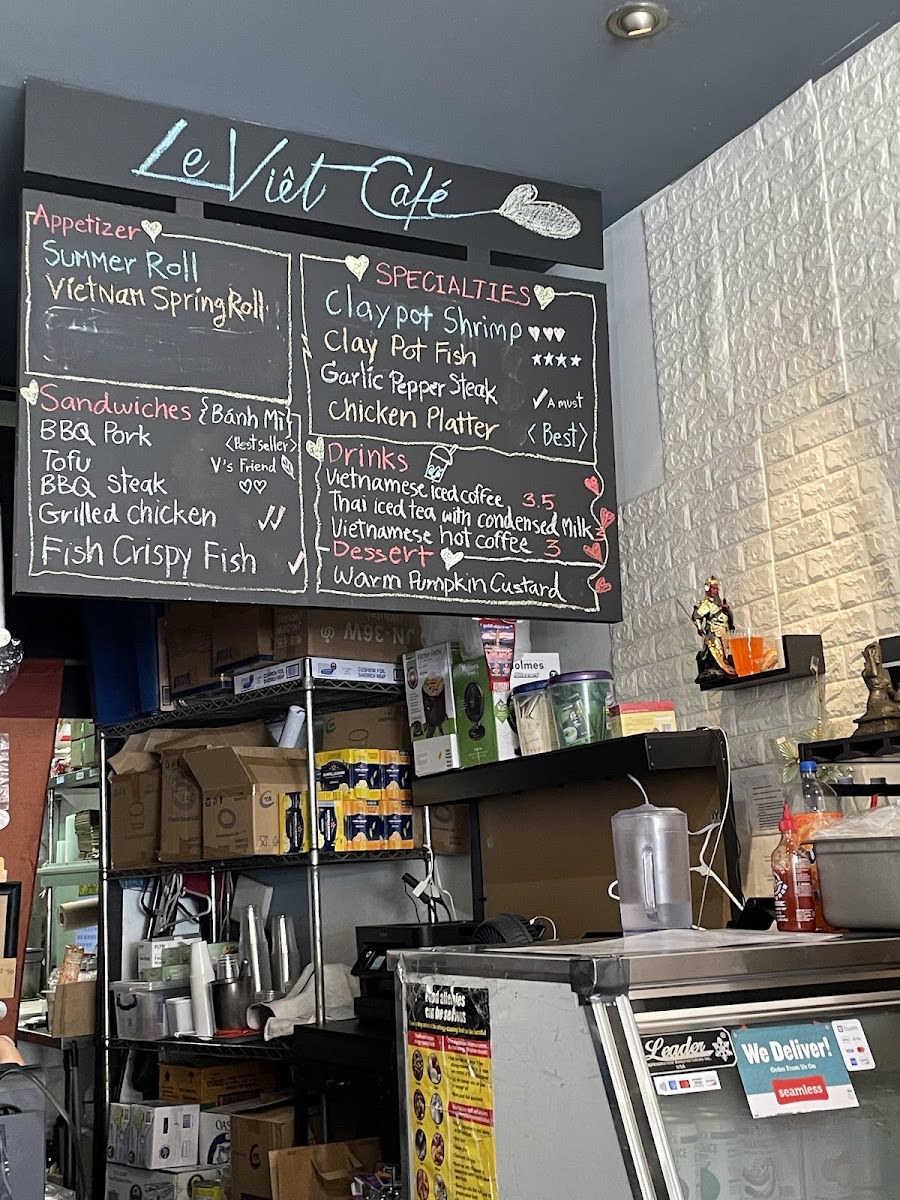 Le Việt Café
Appetizer
Summer Roll
Vietnam Spring Roll
Sandwiches {Bánh Mì}
BBQ Pork <Best seller>
Tofu V's Friend
BBQ Steak
Grilled chicken
Fish Crispy Fish
SPECIALTIES
Clay pot Shrimp
Clay Pot Fish
Garlic Pepper Steak A must
Chicken Platter <Best>
Drinks
Vietnamese iced coffee 3.5
Thai iced tea with condensed Milk 3
Vietnamese hot coffee 3
Dessert
Warm Pumpkin Custard
JN-36W
CUSHION FOIL
SANDWICH WRAP
olmes
Food allergies
can be serious
Leader
We Deliver!
Order From Us On
seamless